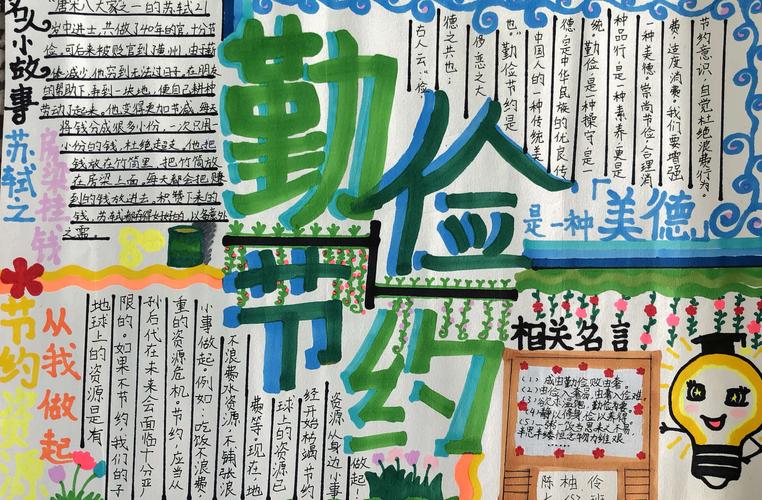 名人小故事
苏轼之
房梁挂钱
唐宋八大家之一的苏轼21
岁中进士,共做了40年的官,十分节
俭,可后来被贬官到
减少,他穷到无法过日子,在朋友
的帮助下,弄到一块地,便自己耕种
劳动了起来,他变得更加节减,每天
将钱分成很多小份,一次只用
小份的钱,杜绝超支,他把
钱放在竹筒里,把竹筒放
在房梁上面,每天都会把剩
的钱放进去,积攒下来的
之需。
勤俭节约
是一种「美德」
节约意识,自觉杜绝浪费行为。
费,适度消费。我们要增强
一种美德。崇尚节俭,合理消
种品行,是一种素养,更是
统。勤俭是一种操守,是一
德,是中华民族的优良传
中国人的一种传统美
也。”勤俭节约是
侈恶之大
德之共也;
古人云“俭
节约资源
从我做起
资源从身边小事
做起!
经开始枯竭,节约
球上的资源已
费等。现在,地
不浪费水资源、不铺张浪
小事做起。例如:吃饭不浪费、
重的资源危机。节约,应当从
孙后代在未来会面临十分严
限的,如果不节约,我们的子
地球上的资源是有
相关名言
(1)成由勤俭败由奢。
(2)由俭入奢易,由奢入俭难。
(4)静以修身,俭以养德。
陈柚伶